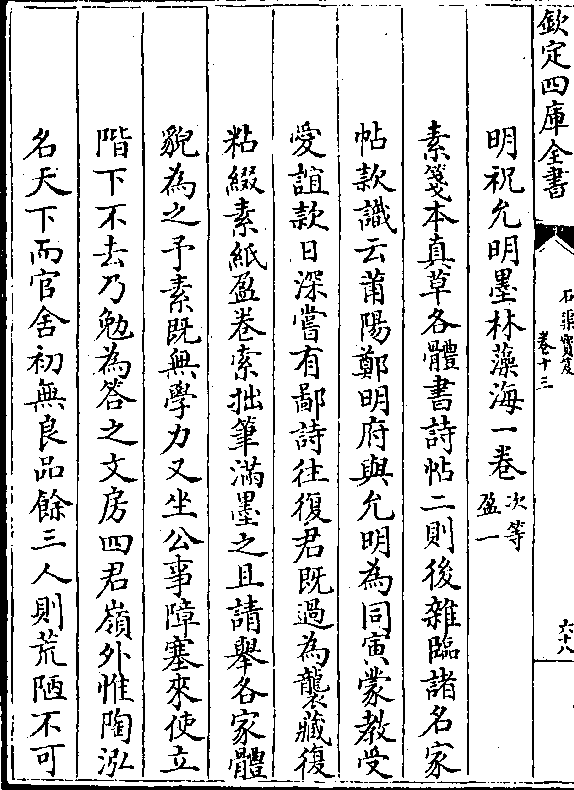 欽定四庫全書
石渠寳笈
卷十三
六十八
明祝允明墨林藻海一卷
次等
盈一
素箋本真草各體書詩帖二則後雜臨諸名家
帖款識云莆陽鄭明府與允明為同寅蒙教受
愛誼款日深嘗有鄙詩往復君既過為襲藏復
粘綴素紙盈卷索拙筆滿墨之且請舉各家體
貌為之予素既無學力又坐公事障塞來使立
階下不去乃勉為答之文房四君嶺外惟陶泓
名天下而官舍初無良品餘三人則荒陋不可